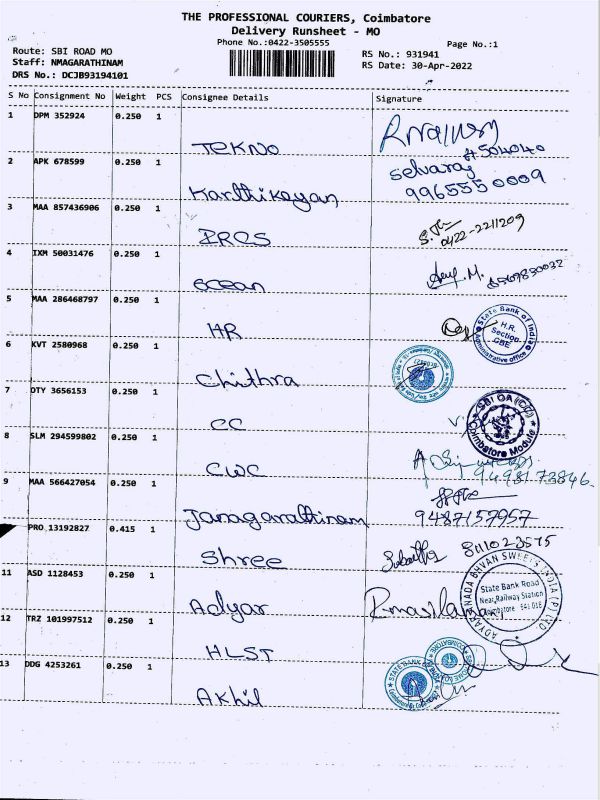 THE PROFESSIONAL COURIERS, Coimbatore
Delivery Runsheet - MO
Phone No.:0422-3505555
Page No.:1
Route: SBI ROAD MO
Staff: NMAGARATHINAM
DRS No.: DCJB93194101
RS No.: 931941
RS Date: 30-Apr-2022
S No Consignment No Weight PCS Consignee Details Signature
1 DPM 352924 0.250 1
TEKNO
504040
2 APK 678599 0.250 1
Karthikeyan
Selvaraj
9965550009
3 MAA 857436906 0.250 1
IRCS
0422-2211209
4 IXM 50031476 0.250 1
Ocean
5 MAA 286468797 0.250 1
HR
State Bank of India
H.R. Section CBE
Administrative office
6 KVT 2580968 0.250 1
Chithra
7 OTY 3656153 0.250 1
CC
SBI OA (CC)
Coimbatore Module
8 SLM 294599802 0.250 1
CWC
9498173846
9 MAA 566427054 0.250 1
Janagarathinam
9487157957
PRO 13192827 0.415 1
Shree
11 ASD 1128453 0.250 1
Adyar
ADYAR ANANDA BHVAN SWEETS INDIA (P) LTD
State Bank Road
Near Railway Station
Coimbatore 641 018
12 TRZ 101997512 0.250 1
HLST
13 DDG 4253261 0.250 1
Akhil
STATE BANK